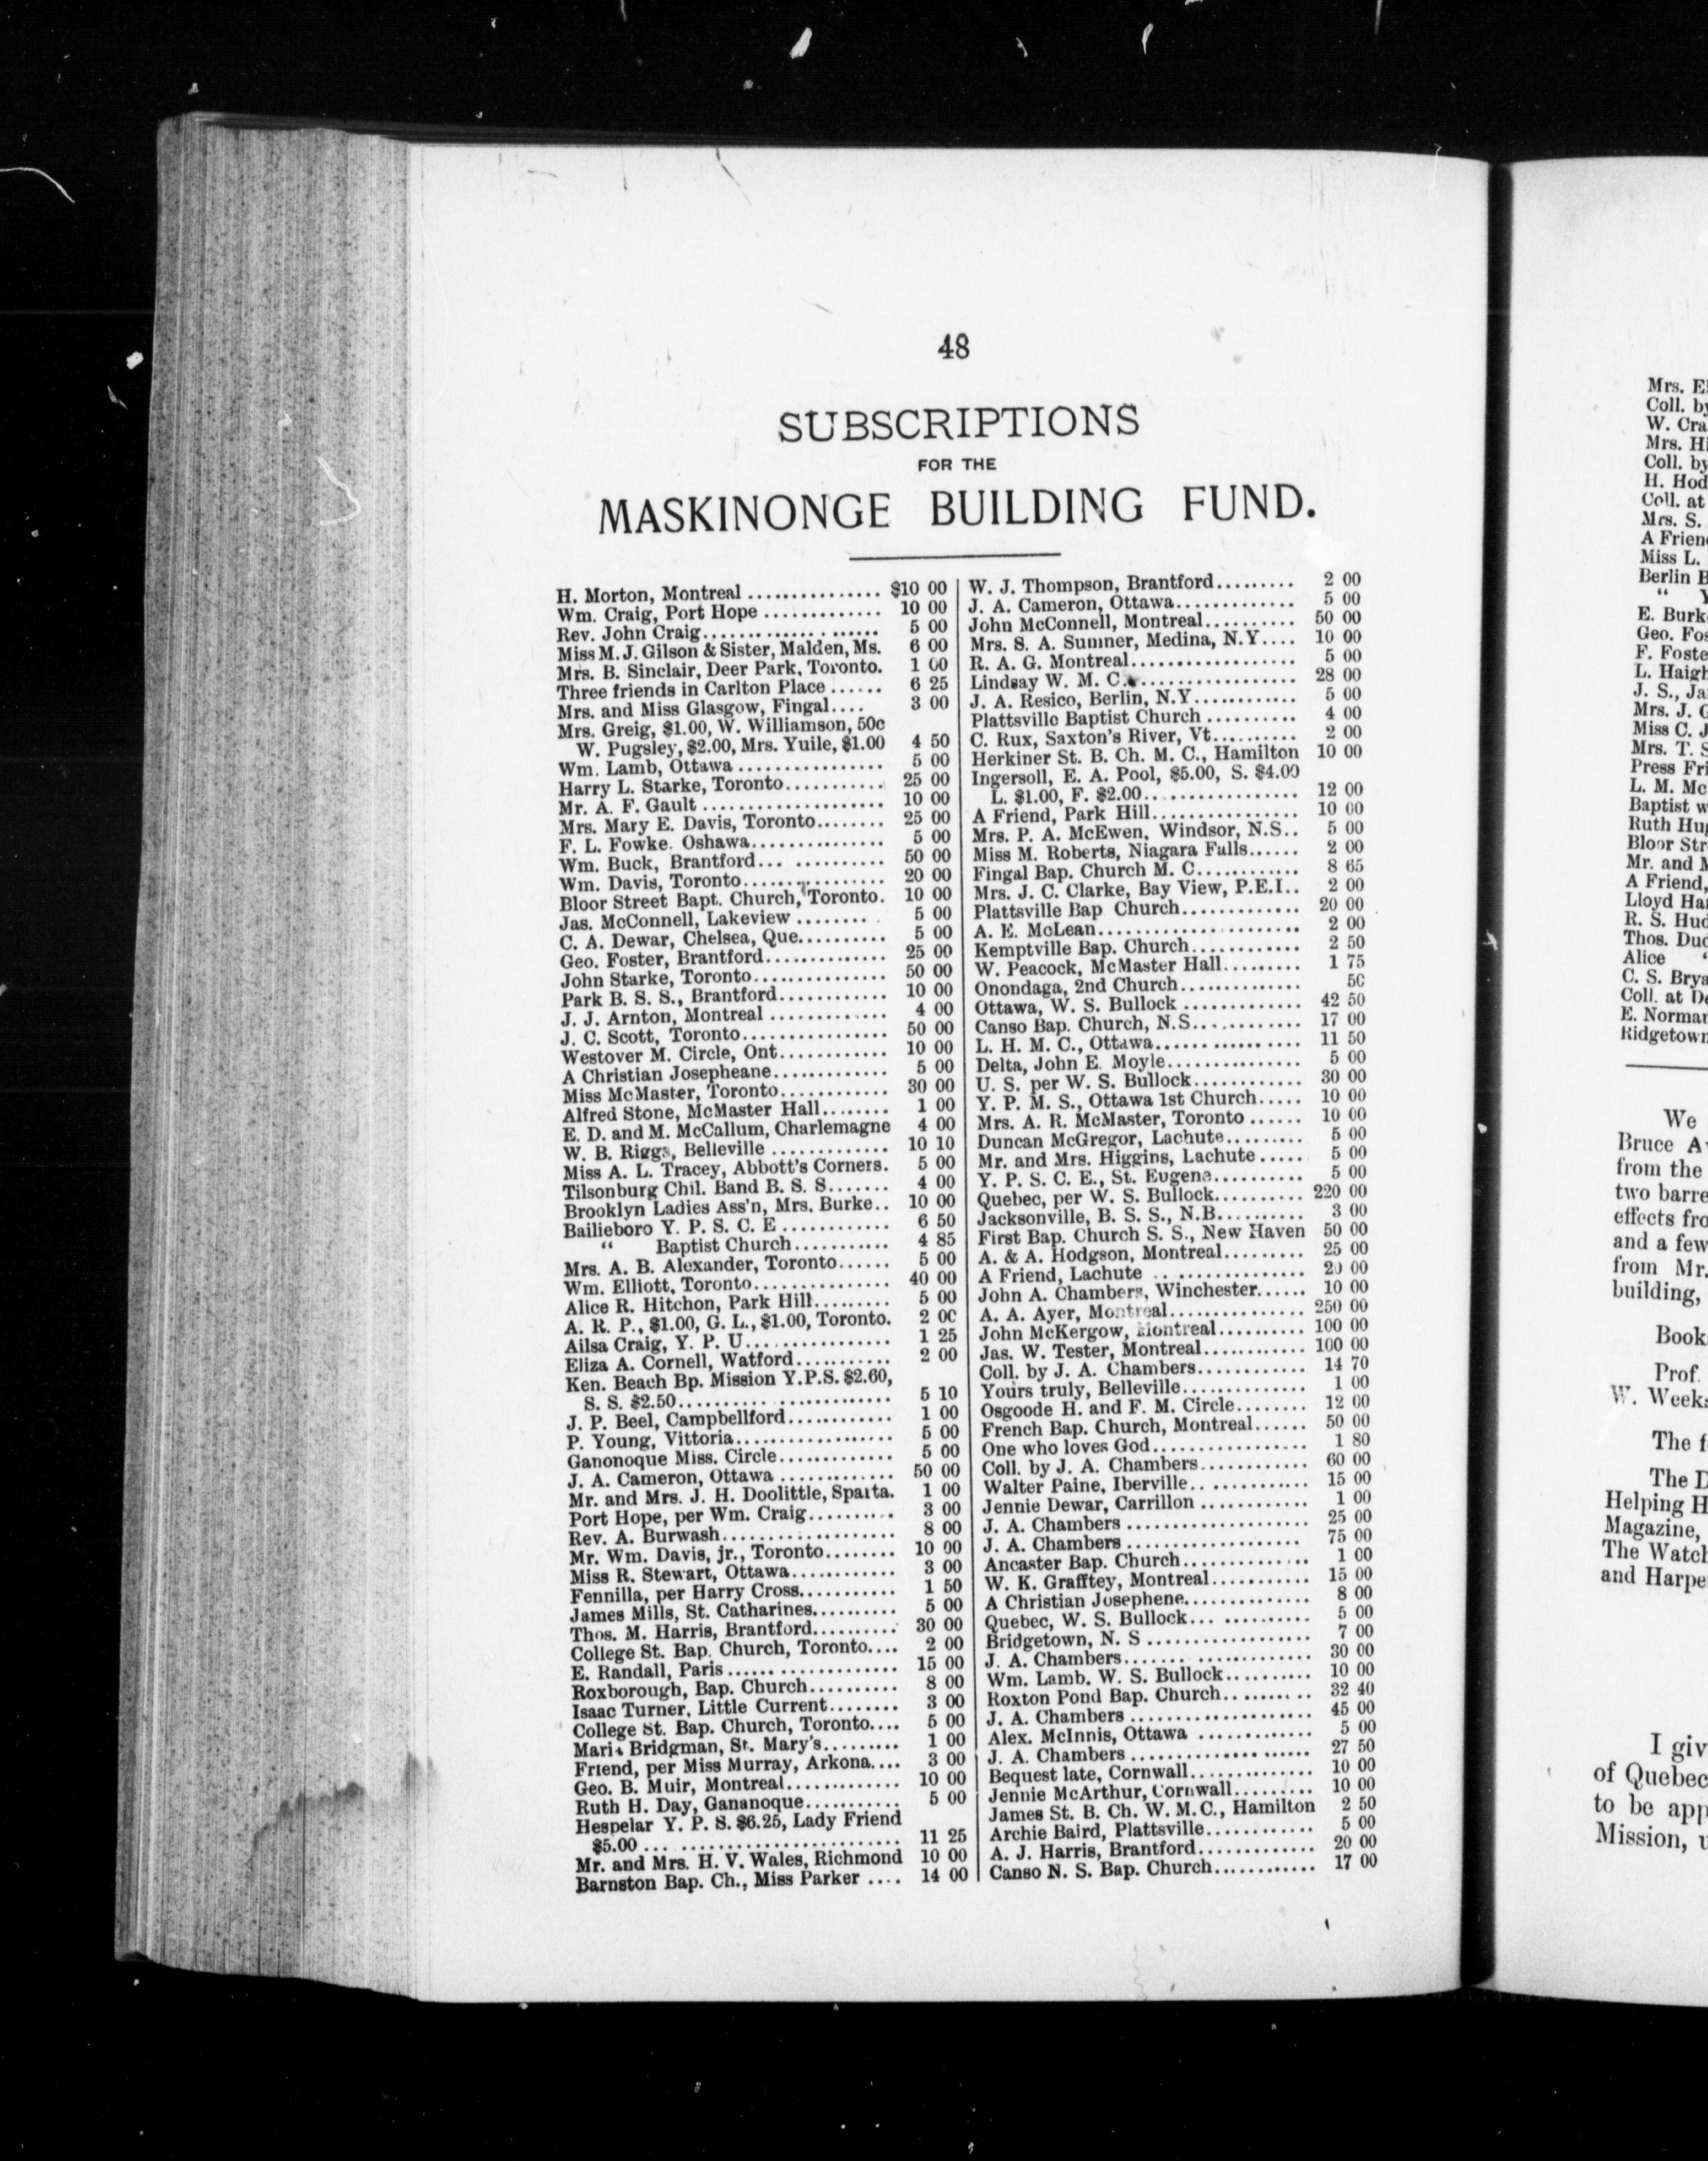 48
SUBSCRIPTIONS
FOR THE
MASKINONGE BUILDING FUND.
H. Morton, Montreal ............... $10 00
Wm. Craig, Port Hope ............. 10 00
Rev. John Craig.................... 5 00
Miss M. J. Gilson & Sister, Malden, Ms. 6 00
Mrs. B. Sinclair, Deer Park, Toronto. 1 00
Three friends in Carlton Place ...... 6 25
Mrs. and Miss Glasgow, Fingal.... 3 00
Mrs. Greig, $1.00, W. Williamson, 50c
W. Pugsley, $2.00, Mrs. Yuile, $1.00 4 50
Wm. Lamb, Ottawa ................ 5 00
Harry L. Starke, Toronto........... 25 00
Mr. A. F. Gault .................... 10 00
Mrs. Mary E. Davis, Toronto........ 25 00
F. L. Fowke. Oshawa............... 5 00
Wm. Buck, Brantford... .......... 50 00
Wm. Davis, Toronto................ 20 00
Bloor Street Bapt. Church, Toronto. 10 00
Jas. McConnell, Lakeview ........ . 5 00
C. A. Dewar, Chelsea, Que.......... 5 00
Geo. Foster, Brantford.............. 25 00
John Starke, Toronto............... 50 00
Park B. S. S., Brantford............ 10 00
J. J. Arnton, Montreal ............. 4 00
J. C. Scott, Toronto................ 50 00
Westover M. Circle, Ont............ 10 00
A Christian Josepheane............. 5 00
Miss McMaster, Toronto............ 30 00
Alfred Stone, McMaster Hall........ 1 00
E. D. and M. McCallum, Charlemagne 4 00
W. B. Riggs, Belleville ............. 10 10
Miss A. L. Tracey, Abbott's Corners. 5 00
Tilsonburg Chil. Band B. S. S....... 4 00
Brooklyn Ladies Ass'n, Mrs. Burke.. 10 00
Bailieboro Y. P. S. C. E ............ 6 50
“ Baptist Church........... 4 85
Mrs. A. B. Alexander, Toronto...... 5 00
Wm. Elliott, Toronto............... 40 00
Alice R. Hitchon, Park Hill......... 5 00
A. R. P., $1.00, G. L., $1.00, Toronto. 2 00
Ailsa Craig, Y. P. U................ 1 25
Eliza A. Cornell, Watford........... 2 00
Ken. Beach Bp. Mission Y.P.S. $2.60,
S. S. $2.50......... ............. 5 10
J. P. Beel, Campbellford............ 1 00
P. Young, Vittoria.................. 5 00
Ganonoque Miss. Circle............. 5 00
J. A. Cameron, Ottawa ............. 50 00
Mr. and Mrs. J. H. Doolittle, Sparta. 1 00
Port Hope, per Wm. Craig.......... 3 00
Rev. A. Burwash................... 8 00
Mr. Wm. Davis, jr., Toronto........ 10 00
Miss R. Stewart, Ottawa............ 3 00
Fennilla, per Harry Cross........... 1 50
James Mills, St. Catharines.......... 5 00
Thos. M. Harris, Brantford.......... 30 00
College St. Bap. Church, Toronto.... 2 00
E. Randall, Paris ................... 15 00
Roxborough, Bap. Church.......... 8 00
Isaac Turner, Little Current........ 3 00
College St. Bap. Church, Toronto.... 5 00
Bridgman, St. Mary's......... 1 00
Friend, per Miss Murray, Arkona.... 3 00
Geo. B. Muir, Montreal............. 10 00
Ruth H. Day, Gananoque........... 5 00
Hespelar Y. P. S. $6.25, Lady Friend
$5.00 ... ......................... 11 25
Mr. and Mrs. H. V. Wales, Richmond 10 00
Barnston Bap. Ch., Miss Parker .... 14 00
W. J. Thompson, Brantford......... 2 00
J. A. Cameron, Ottawa............. 5 00
John McConnell, Montreal.......... 50 00
Mrs. S. A. Sumner, Medina, N.Y.... 10 00
R. A. G. Montreal.................. 5 00
Lindsay W. M. C................... 28 00
J. A. Resico, Berlin, N.Y........... 5 00
Plattsville Baptist Church .......... 4 00
C. Rux, Saxton's River, Vt.......... 2 00
Herkiner St. B. Ch. M. C., Hamilton 10 00
Ingersoll, E. A. Pool, $5.00, S. $4.00
L. $1.00, F. $2.00................. 12 00
A Friend, Park Hill................ 10 00
Mrs. P. A. McEwen, Windsor, N.S.. 5 00
Miss M. Roberts, Niagara Falls...... 2 00
Fingal Bap. Church M. C........... 8 65
Mrs. J. C. Clarke, Bay View, P.E.I.. 2 00
Plattsville Bap Church............. 20 00
A. E. McLean...................... 2 00
Kemptville Bap. Church............ 2 50
W. Peacock, McMaster Hall......... 1 75
Onondaga, 2nd Church............. 50
Ottawa, W. S. Bullock ............. 42 50
Canso Bap. Church, N.S............ 17 00
L. H. M. C., Ottawa................ 11 50
Delta, John E. Moyle............... 5 00
U. S. per W. S. Bullock............ 30 00
Y. P. M. S., Ottawa 1st Church..... 10 00
Mrs. A. R. McMaster, Toronto ...... 10 00
Duncan McGregor, Lachute......... 5 00
Mr. and Mrs. Higgins, Lachute ..... 5 00
Y. P. S. C. E., St. Eugene.......... 5 00
Quebec, per W. S. Bullock.......... 220 00
Jacksonville, B. S. S., N.B.......... 3 00
First Bap. Church S. S., New Haven 50 00
A. & A. Hodgson, Montreal......... 25 00
A Friend, Lachute .. .............. 20 00
John A. Chambers, Winchester...... 10 00
A. A. Ayer, Montreal............... 250 00
John McKergow, Montreal.......... 100 00
Jas. W. Tester, Montreal........... 100 00
Coll. by J. A. Chambers............ 14 70
Yours truly, Belleville.............. 1 00
Osgoode H. and F. M. Circle........ 12 00
French Bap. Church, Montreal...... 50 00
One who loves God................. 1 80
Coll. by J. A. Chambers............ 60 00
Walter Paine, Iberville.. ........... 15 00
Jennie Dewar, Carrillon ............ 1 00
J. A. Chambers .................... 25 00
J. A. Chambers ................... 75 00
Ancaster Bap. Church.............. 1 00
W. K. Grafftey, Montreal........... 15 00
A Christian Josephene.............. 8 00
Quebec, W. S. Bullock... .......... 5 00
Bridgetown, N. S .................. 7 00
J. A. Chambers....... ............. 30 00
Wm. Lamb. W. S. Bullock.......... 10 00
Roxton Pond Bap. Church.......... 32 40
J. A. Chambers .................... 45 00
Alex. McInnis, Ottawa ............. 5 00
J. A. Chambers .................... 27 50
Bequest late, Cornwall.............. 10 00
Jennie McArthur, Cornwall......... 10 00
James St. B. Ch. W. M.C., Hamilton 2 50
Archie Baird, Plattsville............ 5 00
A. J. Harris, Brantford............. 20 00
Canso N. S. Bap. Church............ 17 00
Mrs.
Coll. by
W.
Mrs.
Coll. by
H.
Coll. at
Mrs. S.
A
Miss L.
Berlin
“
E.
Geo.
F.
L.
J. S.,
Mrs. J.
Miss C.
Mrs. T.
Press
L. M.
Baptist
Ruth
Bloor
Mr. and
A Friend,
Lloyd
R. S.
Thos.
Alice
C. S.
Coll. at
E.
We
Bruce
from the
two
effects
and a few
from Mr.
building,
Prof.
W.
The
The
Helping
Magazine,
The
and
I
of
to be
Mission,